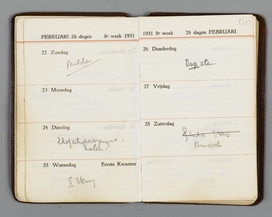 FEBRUARI 28 dagen 8e week 1931
22 Zondag
23 Maandag
24 Dinsdag
25 Woensdag Eerste Kwartier
1931 8e week 28 dagen FEBRUARI
26 Donderdag
27 Vrijdag
28 Zaterdag
Brussel